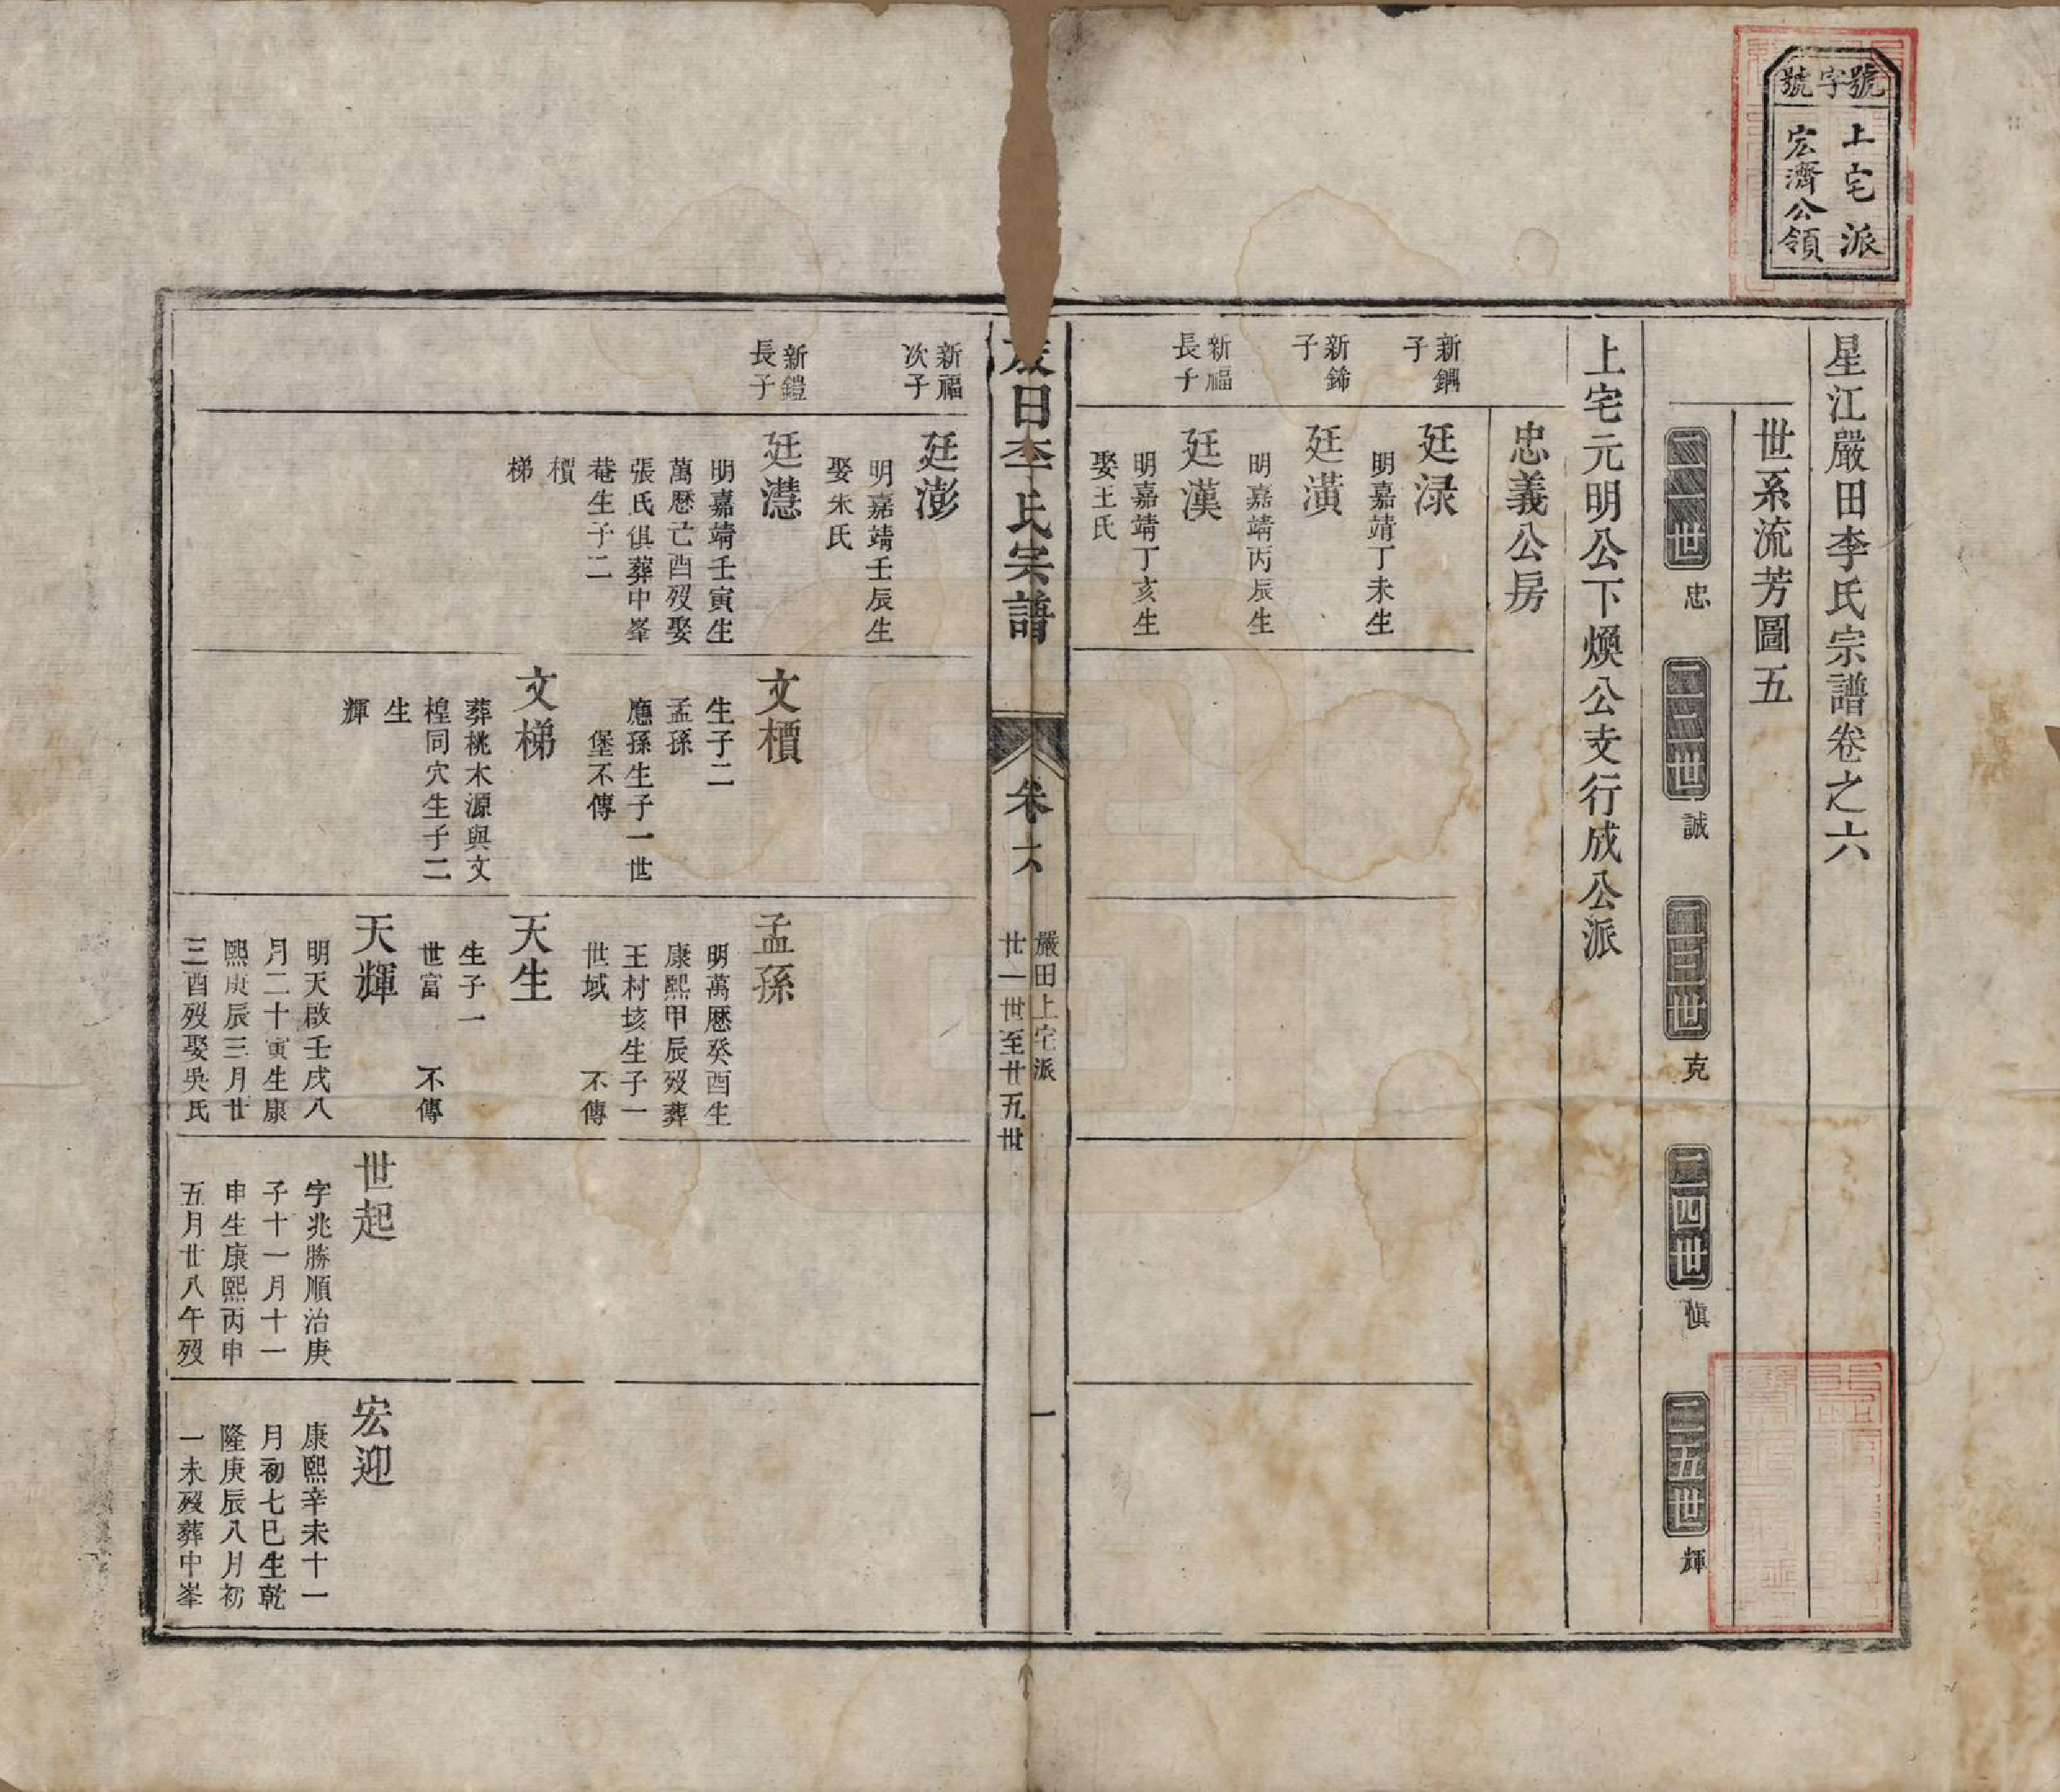 號字號
上宅派
宏濟公領
星江嚴田李氏宗譜卷之六
世系流芳圖五
二一世 忠
二二世 誠
二三世 克
二四世 慎
二五世 輝
上宅元明公下煥公支行成公派
忠義公房
新鋼
子
廷渌
明嘉靖丁未生
新鈽
子
廷潢
明嘉靖丙辰生
新福
長子
廷漢
明嘉靖丁亥生
娶王氏
嚴田李氏宗譜
卷六
嚴田上宅派
廿一世至廿五世
一
新福
次子
廷澎
明嘉靖壬辰生
娶朱氏
新鎧
長子
廷濨
明嘉靖壬寅生
萬曆己酉歿娶
張氏俱葬中峯
菴生子二
檟
梯
文檟
生子二
孟孫
應孫生子一世
堡不傳
文梯
葬桃木源與文
檟同穴生子二
生
輝
孟孫
明萬曆癸酉生
康熙甲辰歿葬
王村垓生子一
世域 不傳
天生
生子一
世富 不傳
天輝
明天啟壬戌八
月二十寅生康
熙庚辰三月廿
三酉歿娶吳氏
世起
字兆勝順治庚
子十一月十一
申生康熙丙申
五月廿八午歿
宏迎
康熙辛未十一
月初七巳生乾
隆庚辰八月初
一未歿葬中峯